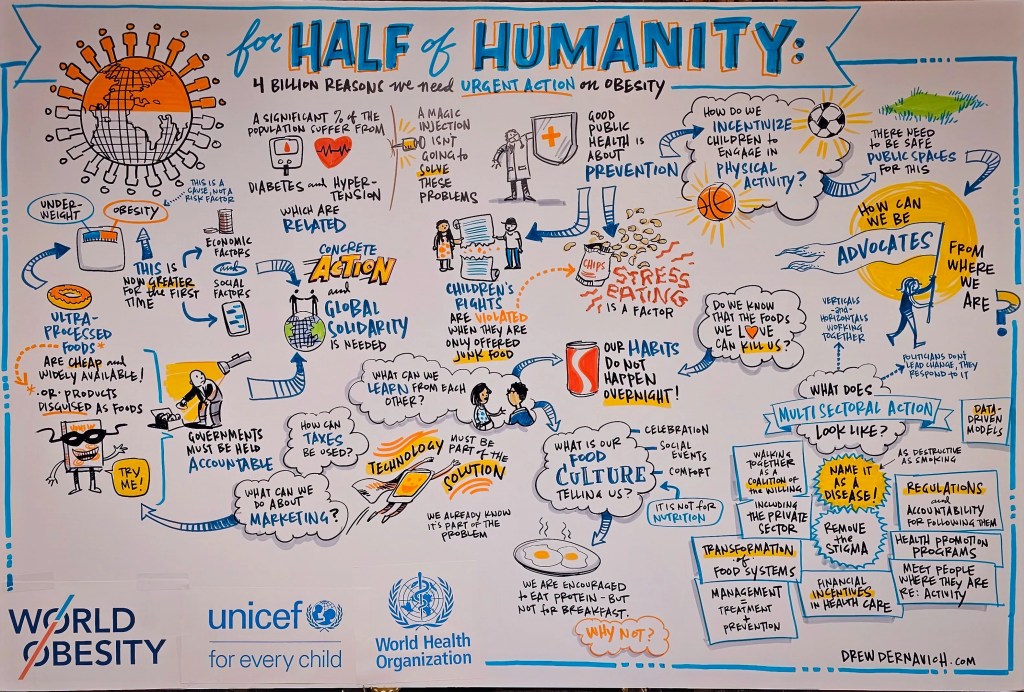 for HALF of HUMANITY:
4 BILLION REASONS we need URGENT ACTION on OBESITY
A SIGNIFICANT % of the
POPULATION SUFFER FROM
DIABETES and HYPER-
TENSION
WHICH ARE
RELATED
A MAGIC
INJECTION
ISN'T
GOING to
SOLVE
THESE
PROBLEMS
GOOD
PUBLIC
HEALTH IS
ABOUT
PREVENTION
HOW DO WE
INCENTIVIZE
CHILDREN to
ENGAGE IN
PHYSICAL
ACTIVITY?
THERE NEED
TO BE SAFE
PUBLIC SPACES
FOR THIS
HOW CAN
WE BE
ADVOCATES
FROM
WHERE
WE
ARE ?
UNDER-
WEIGHT
OBESITY
THIS IS A
CAUSE, NOT A
RISK FACTOR
THIS IS
NOW GREATER
for the FIRST
TIME
ECONOMIC
FACTORS
and
SOCIAL
FACTORS
CONCRETE
ACTION
and
GLOBAL
SOLIDARITY
IS NEEDED
CHILDREN'S
RIGHTS
ARE VIOLATED
WHEN THEY ARE
ONLY OFFERED
JUNK FOOD
CHIPS
STRESS
EATING
IS A FACTOR
ULTRA-
PROCESSED
FOODS*
ARE CHEAP and
WIDELY AVAILABLE!
* -OR- PRODUCTS
DISGUISED AS FOODS
TRY
ME!
GOVERNMENTS
MUST BE HELD
ACCOUNTABLE
WHAT CAN WE
LEARN FROM EACH
OTHER?
OUR HABITS
DO NOT
HAPPEN
OVERNIGHT!
DO WE KNOW
THAT THE FOODS
WE LOVE
CAN KILL US?
VERTICALS
-and-
HORIZONTALS
WORKING
TOGETHER
POLITICIANS DON'T
LEAD CHANGE, THEY
RESPOND TO IT
WHAT DOES
MULTISECTORAL ACTION
LOOK LIKE?
DATA-
DRIVEN
MODELS
HOW CAN
TAXES
BE USED?
WHAT CAN WE
DO ABOUT
MARKETING?
TECHNOLOGY MUST BE
PART of the
SOLUTION
WE ALREADY KNOW
IT'S PART OF THE
PROBLEM
WHAT IS OUR
FOOD
CULTURE
TELLING US?
CELEBRATION
SOCIAL
EVENTS
COMFORT
IT IS NOT FOR
NUTRITION
WE ARE ENCOURAGED
TO EAT PROTEIN - BUT
NOT FOR BREAKFAST.
WHY NOT?
WALKING
TOGETHER
AS A
COALITION of the
WILLING
INCLUDING
THE PRIVATE
SECTOR
NAME IT
AS A
DISEASE!
AS DESTRUCTIVE
AS SMOKING
REGULATIONS
and
ACCOUNTABILITY
FOR FOLLOWING THEM
REMOVE
the
STIGMA
HEALTH PROMOTION
PROGRAMS
TRANSFORMATION
of
FOOD SYSTEMS
MANAGEMENT
=
TREATMENT
+
PREVENTION
FINANCIAL
INCENTIVES
IN HEALTH CARE
MEET PEOPLE
WHERE THEY ARE
RE: ACTIVITY
WORLD
OBESITY
unicef
for every child
World Health
Organization
DREWDERNAVICH.COM